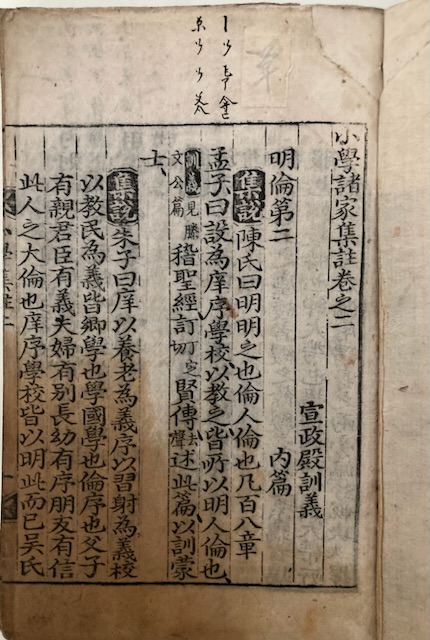 小學諸家集註卷之二
宣政殿訓義
明倫第二 內篇
集說 陳氏曰明明之也倫人倫也凡百八章
孟子曰設為庠序學校以教之皆所以明人倫也
訓義見滕文公篇 稽聖經訂賢傳去聲述此篇以訓蒙
士
集說 朱子曰庠以養老為義序以習射為義校
以教民為義皆鄉學也學國學也倫序也父子
有親君臣有義夫婦有別長幼有序朋友有信
此人之大倫也庠序學校皆以明此而已吳氏
小學集註二